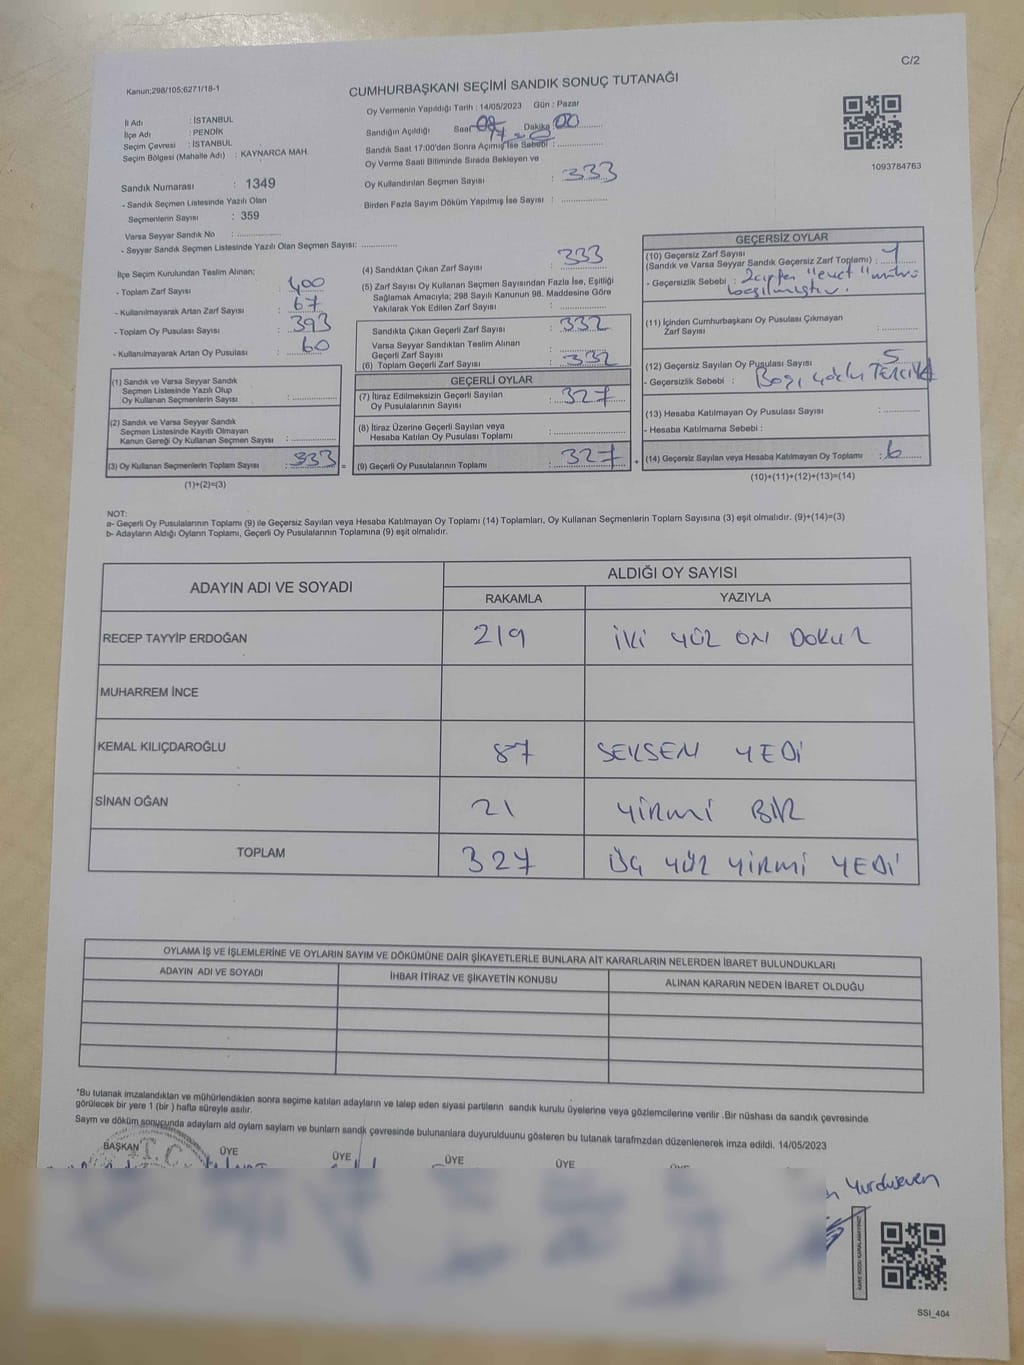 C/2
Kanun;298/105;6271/18-1
CUMHURBAŞKANI SEÇİMİ SANDIK SONUÇ TUTANAĞI
Oy Vermenin Yapıldığı Tarih : 14/05/2023 Gün : Pazar
İl Adı : İSTANBUL
İlçe Adı : PENDİK
Seçim Çevresi : İSTANBUL
Seçim Bölgesi (Mahalle Adı) : KAYNARCA MAH.
Sandığın Açıldığı Saat Dakika 00
Sandık Saat 17:00'den Sonra Açılmış İse Sebebi :
Oy Verme Saati Bitiminde Sırada Bekleyen ve
Oy Kullandırılan Seçmen Sayısı : 333
Birden Fazla Sayım Döküm Yapılmış İse Sayısı :
1093784763
Sandık Numarası : 1349
- Sandık Seçmen Listesinde Yazılı Olan
Seçmenlerin Sayısı : 359
Varsa Seyyar Sandık No :
- Seyyar Sandık Seçmen Listesinde Yazılı Olan Seçmen Sayısı:
İlçe Seçim Kurulundan Teslim Alınan;
- Toplam Zarf Sayısı : 400
- Kullanılmayarak Artan Zarf Sayısı : 67
- Toplam Oy Pusulası Sayısı : 393
- Kullanılmayarak Artan Oy Pusulası : 60
(1) Sandık ve Varsa Seyyar Sandık
Seçmen Listesinde Yazılı Olup
Oy Kullanan Seçmenlerin Sayısı :
(2) Sandık ve Varsa Seyyar Sandık
Seçmen Listesinde Kayıtlı Olmayan
Kanun Gereği Oy Kullanan Seçmen Sayısı :
(3) Oy Kullanan Seçmenlerin Toplam Sayısı : 333 =
(1)+(2)=(3)
(4) Sandıktan Çıkan Zarf Sayısı : 333
(5) Zarf Sayısı Oy Kullanan Seçmen Sayısından Fazla İse, Eşitliği
Sağlamak Amacıyla; 298 Sayılı Kanunun 98. Maddesine Göre
Yakılarak Yok Edilen Zarf Sayısı :
Sandıkta Çıkan Geçerli Zarf Sayısı : 332
Varsa Seyyar Sandıktan Teslim Alınan
Geçerli Zarf Sayısı :
(6) Toplam Geçerli Zarf Sayısı : 332
GEÇERLİ OYLAR
(7) İtiraz Edilmeksizin Geçerli Sayılan
Oy Pusulalarının Sayısı : 327
(8) İtiraz Üzerine Geçerli Sayılan veya
Hesaba Katılan Oy Pusulası Toplamı :
(9) Geçerli Oy Pusulalarının Toplamı : 327 +
GEÇERSİZ OYLAR
(10) Geçersiz Zarf Sayısı
(Sandık ve Varsa Seyyar Sandık Geçersiz Zarf Toplamı) : 1
- Geçersizlik Sebebi : "evet"
basılmıştır.
(11) İçinden Cumhurbaşkanı Oy Pusulası Çıkmayan
Zarf Sayısı :
(12) Geçersiz Sayılan Oy Pusulası Sayısı : 5
- Geçersizlik Sebebi :
(13) Hesaba Katılmayan Oy Pusulası Sayısı :
- Hesaba Katılmama Sebebi :
(14) Geçersiz Sayılan veya Hesaba Katılmayan Oy Toplamı : 6
(10)+(11)+(12)+(13)=(14)
NOT:
a- Geçerli Oy Pusulalarının Toplamı (9) ile Geçersiz Sayılan veya Hesaba Katılmayan Oy Toplamı (14) Toplamları, Oy Kullanan Seçmenlerin Toplam Sayısına (3) eşit olmalıdır. (9)+(14)=(3)
b- Adayların Aldığı Oyların Toplamı, Geçerli Oy Pusulalarının Toplamına (9) eşit olmalıdır.
ADAYIN ADI VE SOYADI ALDIĞI OY SAYISI
RAKAMLA YAZIYLA
RECEP TAYYİP ERDOĞAN 219 İKİ YÜZ ON DOKUZ
MUHARREM İNCE
KEMAL KILIÇDAROĞLU 87 SEKSEN YEDİ
SİNAN OĞAN 21 YİRMİ BİR
TOPLAM 327 ÜÇ YÜZ YİRMİ YEDİ
OYLAMA İŞ VE İŞLEMLERİNE VE OYLARIN SAYIM VE DÖKÜMÜNE DAİR ŞİKAYETLERLE BUNLARA AİT KARARLARIN NELERDEN İBARET BULUNDUKLARI
ADAYIN ADI VE SOYADI İHBAR İTİRAZ VE ŞİKAYETİN KONUSU ALINAN KARARIN NEDEN İBARET OLDUĞU
*Bu tutanak imzalandıktan ve mühürlendikten sonra seçime katılan adayların ve talep eden siyasi partilerin sandık kurulu üyelerine veya gözlemcilerine verilir .Bir nüshası da sandık çevresinde
görülecek bir yere 1 (bir ) hafta süreyle asılır.
Sayım ve döküm sonucunda adayların ald oyların sayları ve bunların sandık çevresinde bulunanlara duyurulduunu gösteren bu tutanak tarafmzdan düzenlenerek imza edildi. 14/05/2023
BAŞKAN ÜYE ÜYE ÜYE ÜYE
T.C.
Yurduseven
KARE KODU KARALAMAYINIZ
SSI_404